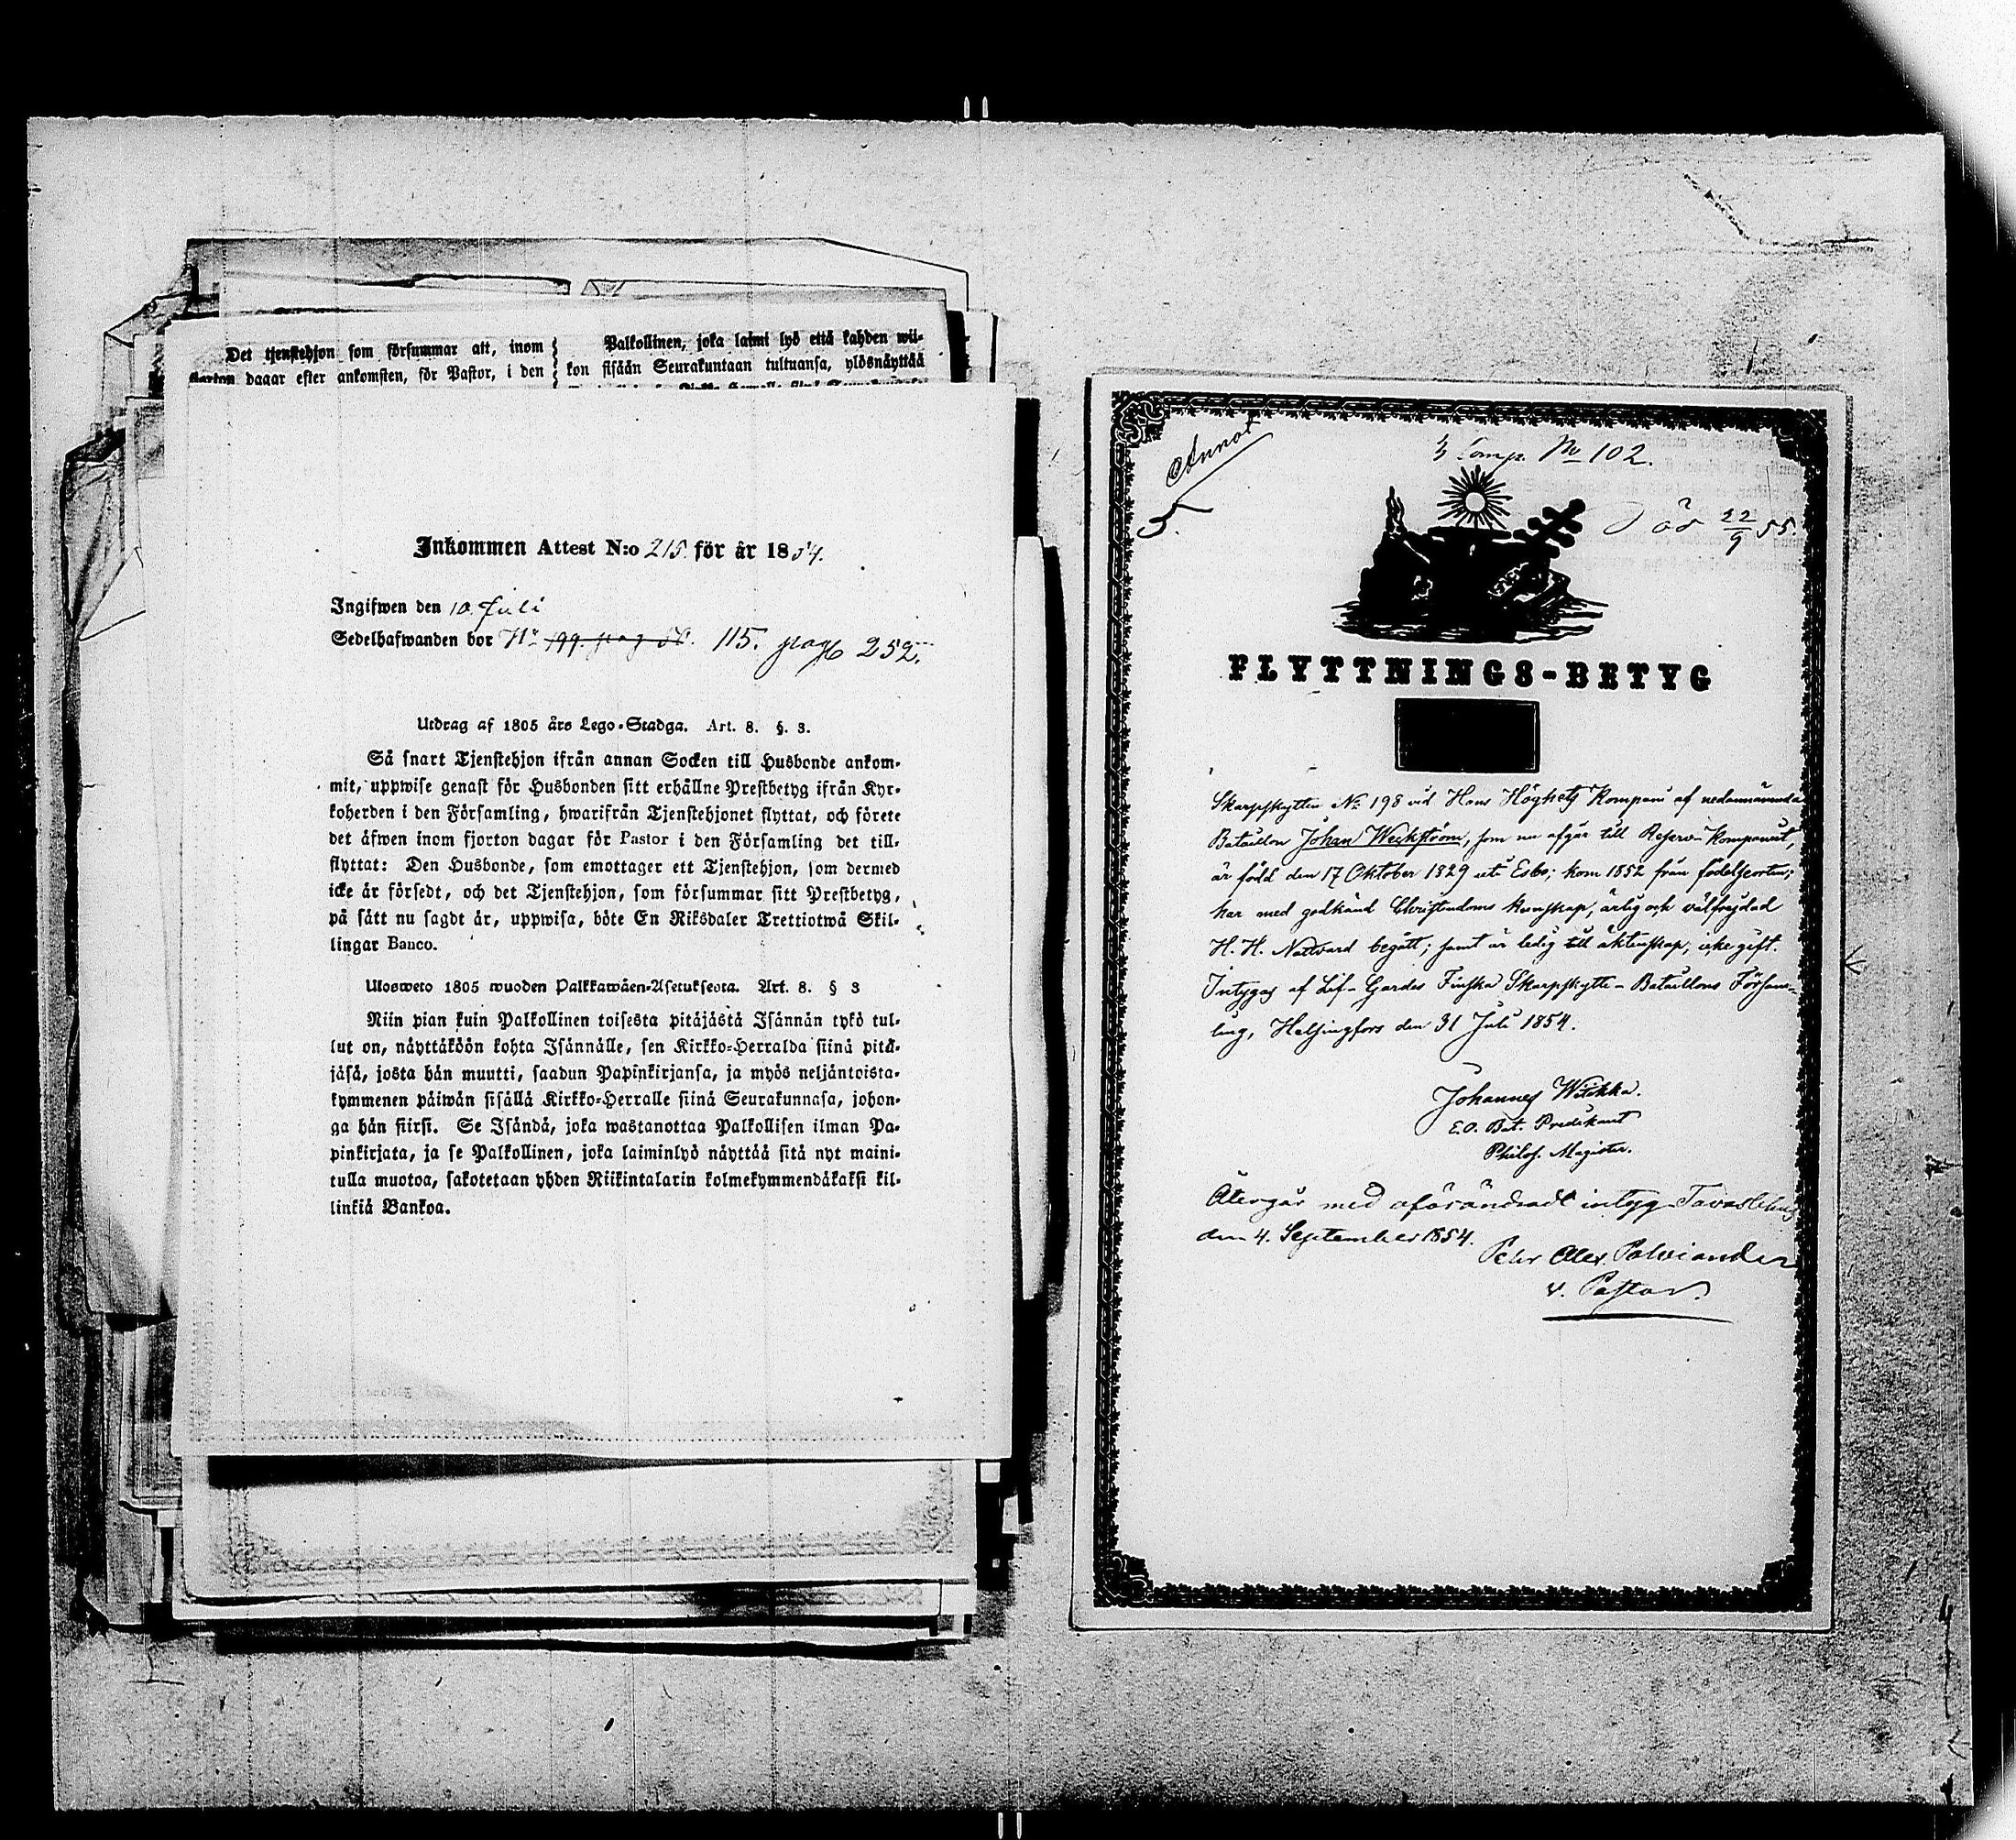 Det tjenstehjon som försummar att, inom
dagar efter ankomsten, för Pastor, i den
Palkollinen, joka laimi lyö että kahden wii-
kon sisään Seurakuntaan tultuansa, ylösnäyttää
Inkommen Attest N:o 215. för år 1854.
Ingifwen den 10. Juli
Sedelhafwanden bor N:r 199. pag 115. pag 252.
Utdrag af 1805 års Lego-Stadga. Art. 8. §. 3.
Så snart Tjenstehjon ifrån annan Socken till Husbonde ankom-
mit, uppwise genast för Husbonden sitt erhållne Prestbetyg ifrån Kyr-
koherden i den Församling, hwarifrån Tjenstehjonet flyttat, och förete
det äfwen inom fjorton dagar för Pastor i den Församling det till-
flyttat: Den Husbonde, som emottager ett Tjenstehjon, som dermed
icke är försedt, och det Tjenstehjon, som försummar sitt Prestbetyg,
på sätt nu sagdt är, uppwisa, böte En Riksdaler Trettiotwå Skil-
lingar Banco.
Ulosweto 1805 wuoden Palkkawäen-Asetuksesta. Art. 8. § 3
Niin pian kuin Palkollinen toisesta pitäjästä Isännän tykö tul-
lut on, näyttäköön kohta Isännälle, sen Kirkko-Herralda siinä pitä-
jäsä, josta hän muutti, saadun Papinkirjansa, ja myös neljäntoista-
kymmenen päiwän sisällä Kirkko-Herralle siinä Seurakunnasa, johon-
ga hän siirsi. Se Isändä, joka wastanottaa Palkollisen ilman Pa-
pinkirjata, ja se Palkollinen, joka laiminlyö näyttää sitä nyt maini-
tulla muotoa, sakotetaan yhden Riikintalarin kolmekymmendäkaksi kil-
linkiä Bankoa.
Annot
5.
3 Comp. No 102.
Död 22/9 55.
FLYTTNINGS-BETYG
Skarpskytten No 198 vid Hans Höghets Kompani af nedannämnda
Bataillon Johan Weckström, som nu afgår till Reserv-Kompaniet,
är född den 17 Oktober 1829 uti Esbo; kom 1852 från födelseorten;
har med godkänd Christendoms kunskap, ärlig och välfrejdad
H. H. Nattvard begått; samt är ledig till äktenskap, icke gift.
Intygas af Lif-Gardes Finska Skarpskytte-Bataillons Försam-
ling, Helsingfors den 31 Juli 1854.
Johannes
E.O. Bat. Predikant
Philos. Magister.
Återgår med oförändradt intyg Tavastehus
den 4. September 1854.
Pehr Alex. Palviander
v. Pastor.